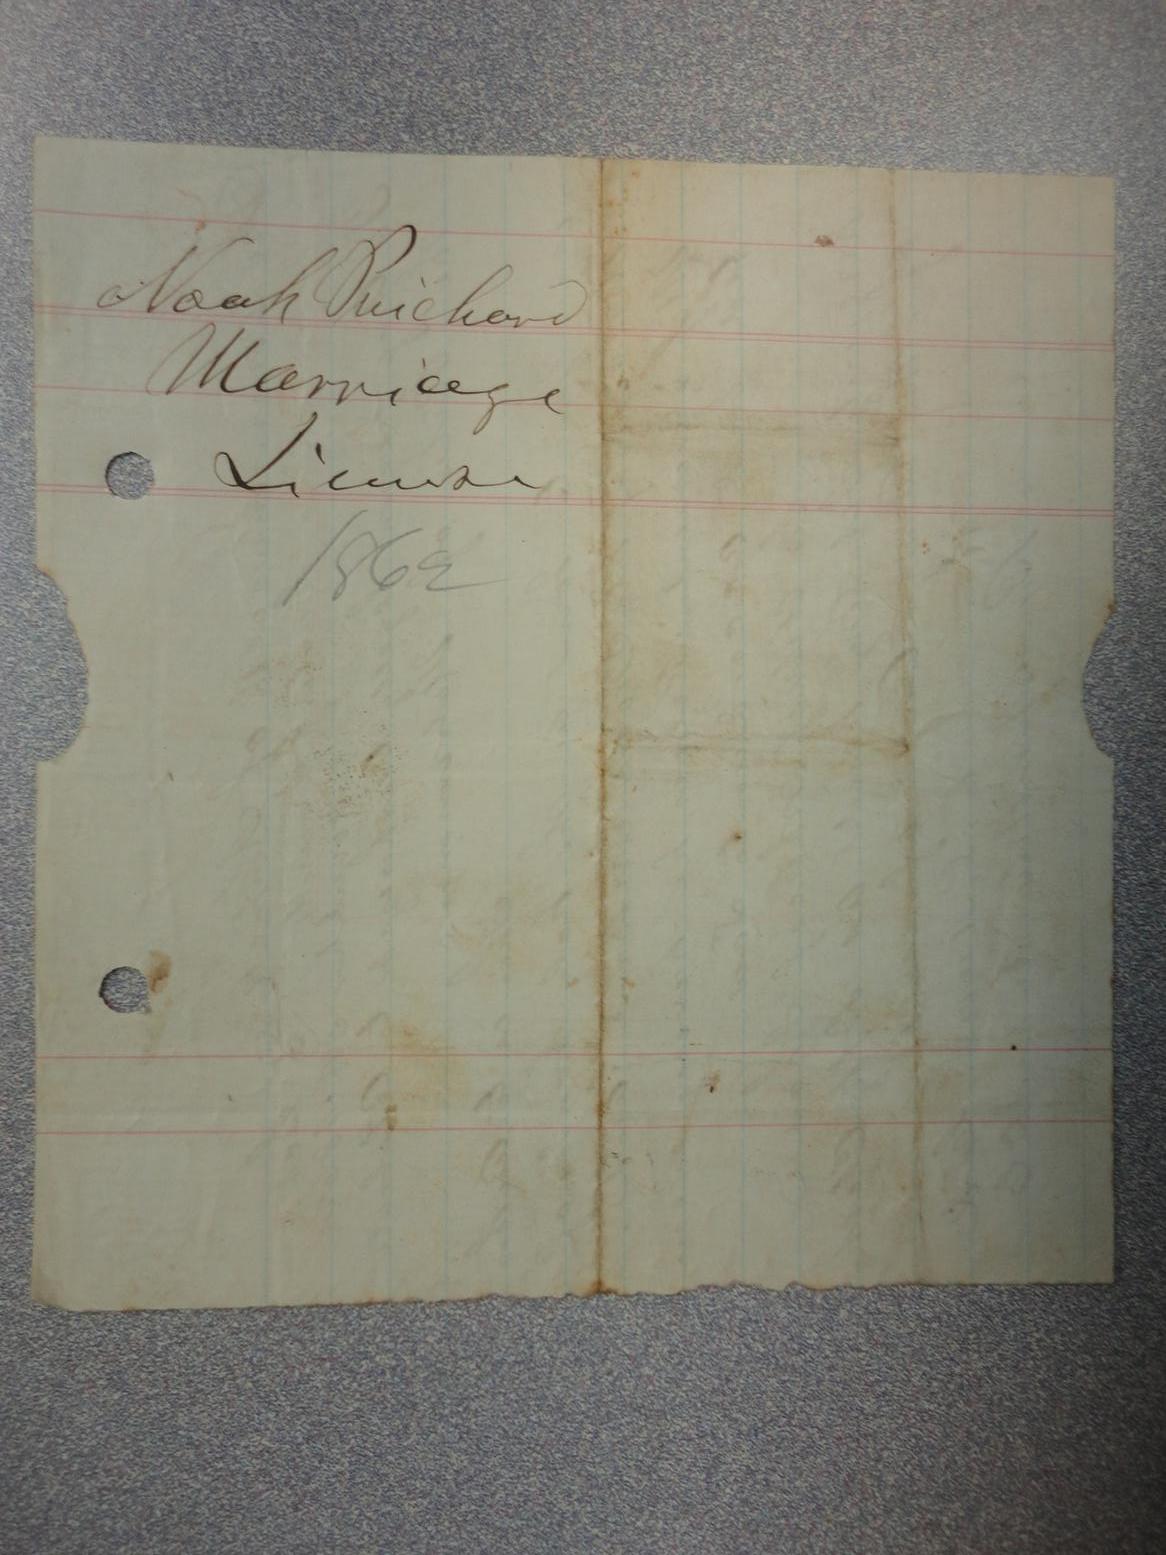 Noah Prichard
Marriage
License
1862